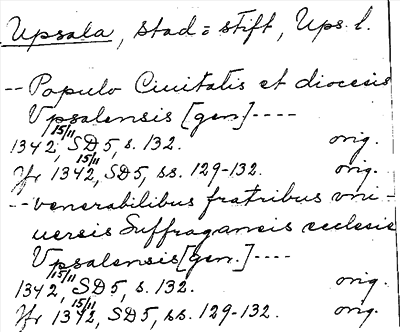 Upsala, stad = stift, Ups. l.
-- Populo Ciuitatis et diocesis
Vpsalensis [gen] ----
1342 15/11, SD5, s. 132. orig.
Jfr 1342 15/11, SD5, ss. 129-132. orig.
-- venerabilibus fratribus vni-
uersis Suffraganeis ecclesie
Vpsalensis [gen.] ----
1342 15/11, SD5, s. 132. orig.
Jfr 1342 15/11, SD5, ss. 129-132. orig.